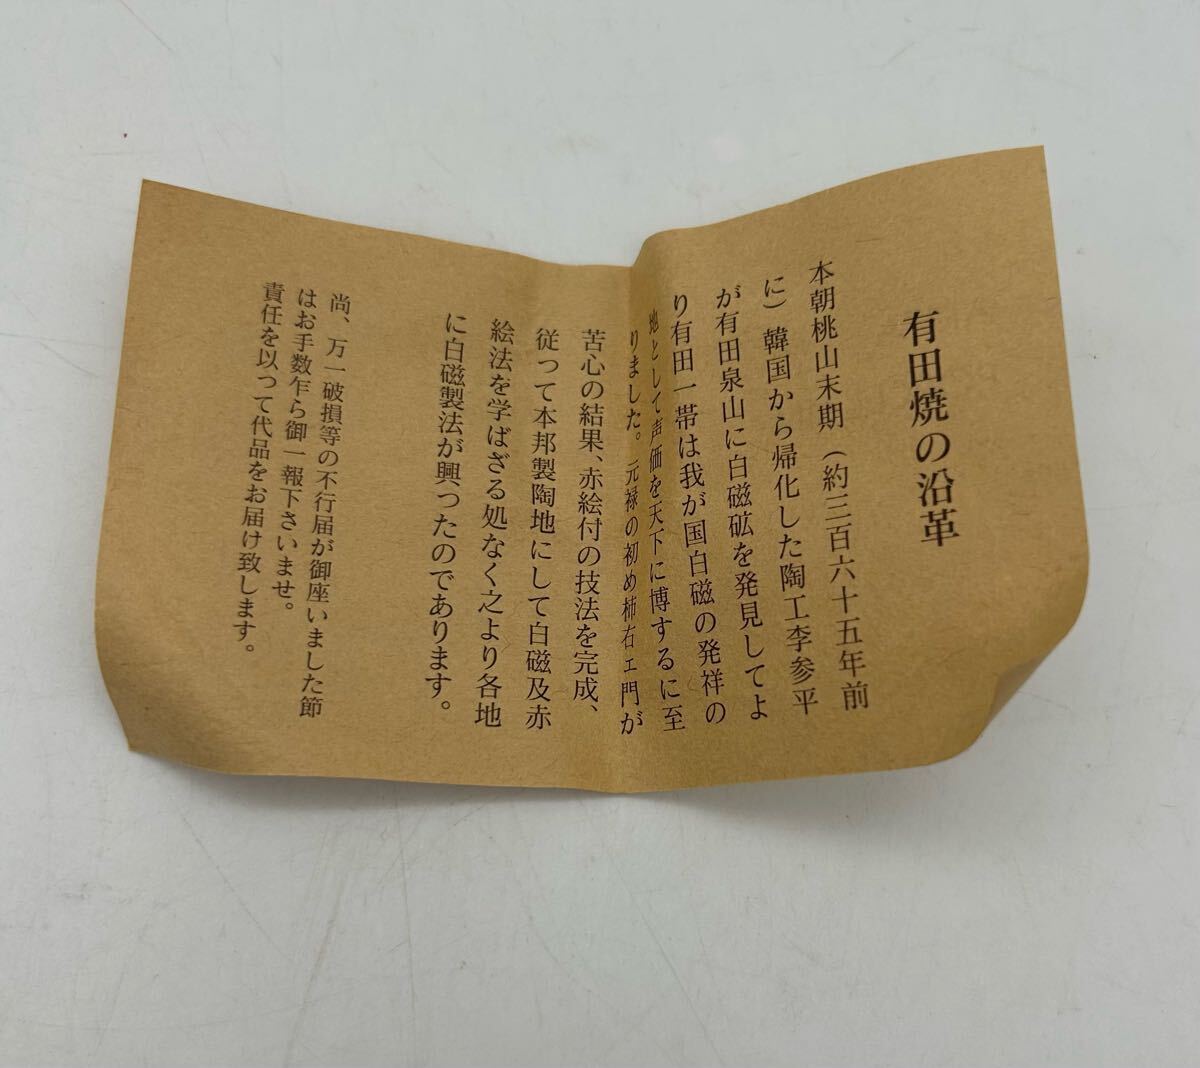 有田焼の沿革
本朝桃山末期(約三百六十五年前
に)韓国から帰化した陶工李参平
が有田泉山に白磁砿を発見してよ
り有田一帯は我が国白磁の発祥の
地として声価を天下に博するに至
りました。元禄の初め柿右ェ門が
苦心の結果、赤絵付の技法を完成、
従って本邦製陶地にして白磁及赤
絵法を学ばざる処なく之より各地
に白磁製法が興ったのであります。
尚、万一破損等の不行届が御座いました節
はお手数乍ら御一報下さいませ。
責任を以って代品をお届け致します。